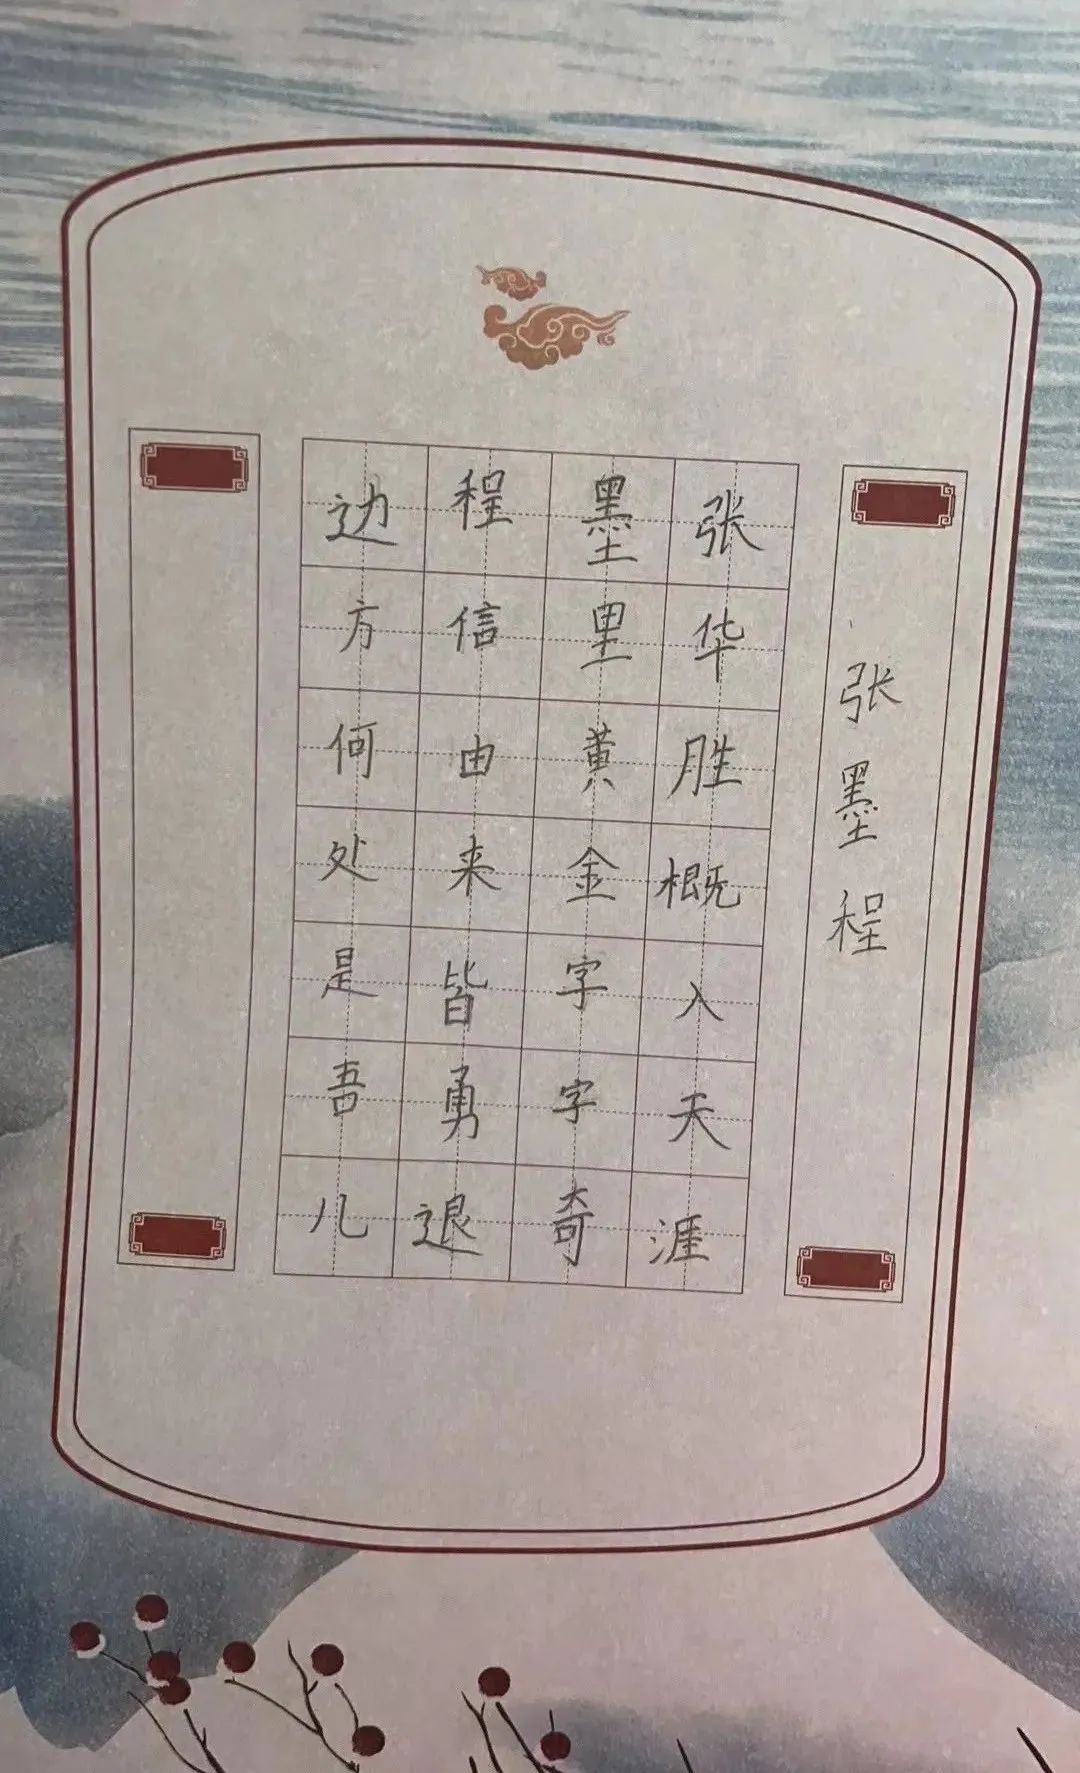 张墨程
张华胜概入天涯
墨里黄金字字奇
程信由来皆勇退
边方何处是吾儿